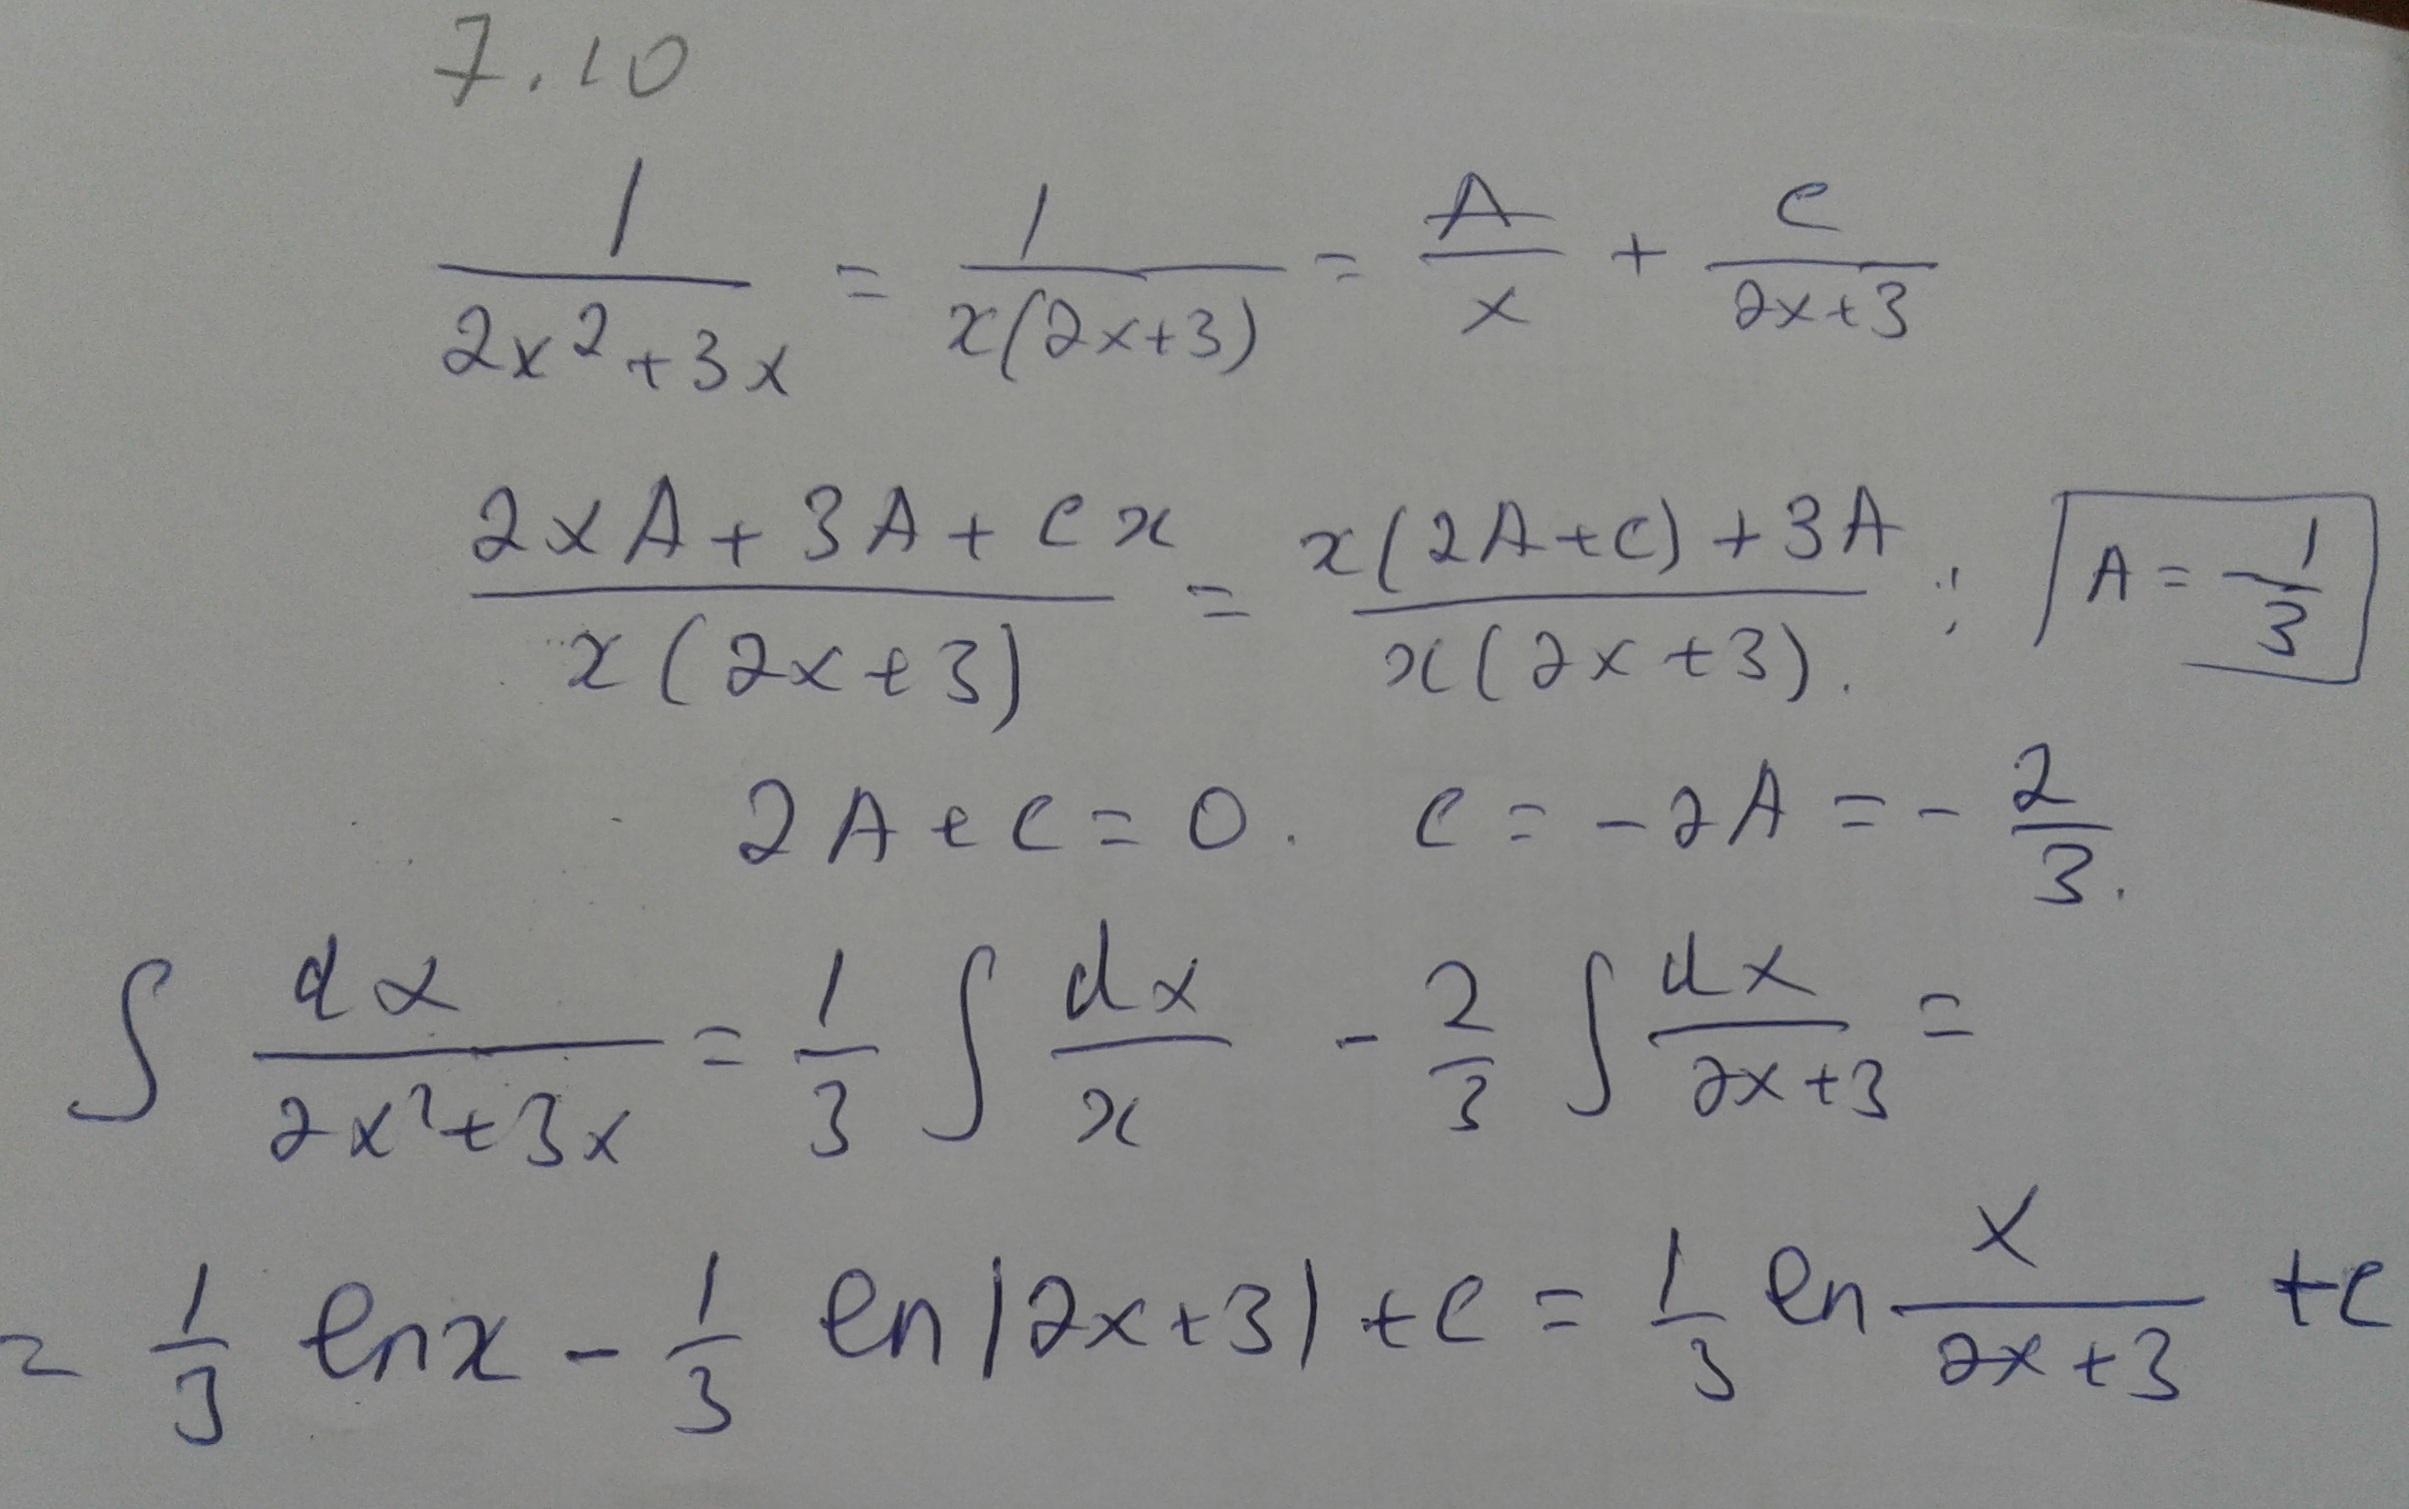 7.10
1/(2x²+3x) = 1/(x(2x+3)) = A/x + c/(2x+3)
(2xA+3A+cx)/(x(2x+3)) = (x(2A+c)+3A)/(x(2x+3)). ; A = 1/3
2A+c=0. c=-2A=-2/3.
∫ dx/(2x²+3x) = 1/3 ∫ dx/x - 2/3 ∫ dx/(2x+3) =
= 1/3 ln x - 1/3 ln|2x+3|+c = 1/3 ln x/(2x+3) +c